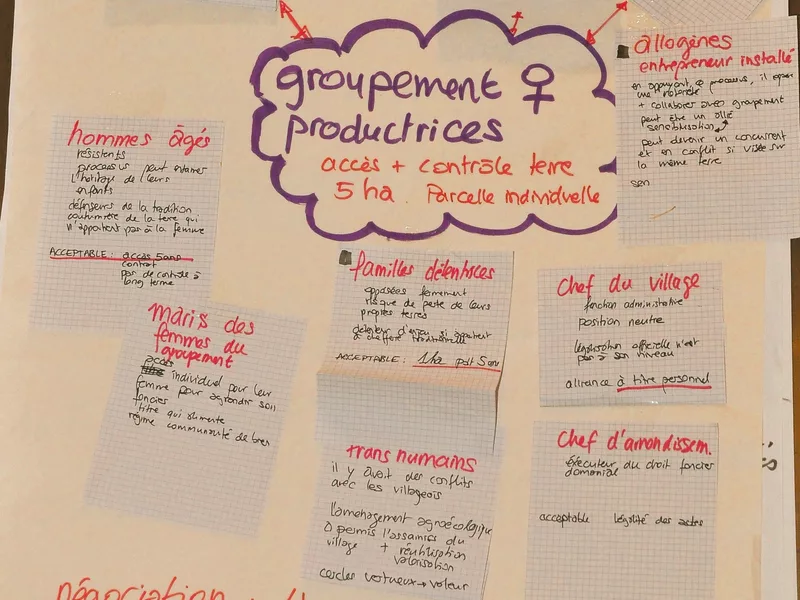 groupement ♀
productrices
accès + contrôle terre
5 ha. Parcelle individuelle
allogènes
entrepreneur installé
en appuyant processus, il
une notoriété
+ collaborer avec groupement
peut être un allié
sensibilisation
peut devenir un concurrent
et en conflit si visée sur
la même terre
son
hommes âgés
résistents
processus peut entamer
l'héritage de leurs
enfants
défenseurs de la tradition
coutumière de la terre qui
n'appartient pas à la femme
ACCEPTABLE: accès 5 ans
contrat
pas de contrôle à
long terme
maris des
femmes du
groupement
accès
individuel pour leur
femme pour agrandir son
foncier
titre qui alimente
régime communauté de biens
familles détentrices
opposées fermement
risque de perte de leurs
propres terres
détenteur d'enjeu si appartient
à chefferie traditionnelle
ACCEPTABLE: 1 ha pdt 5 ans
transhumains
il y avait des conflits
avec les villageois
l'aménagement agroécologique
a permis l'assainiss. du
village + réutilisation
valorisation
cercles vertueux → valeur
chef du village
fonction administrative
position neutre
législation officielle n'est
pas à son niveau
alliance à titre personnel
chef d'arrondissem.
éxécuteur du droit foncier
domanial
acceptable légalité des actes
négociation